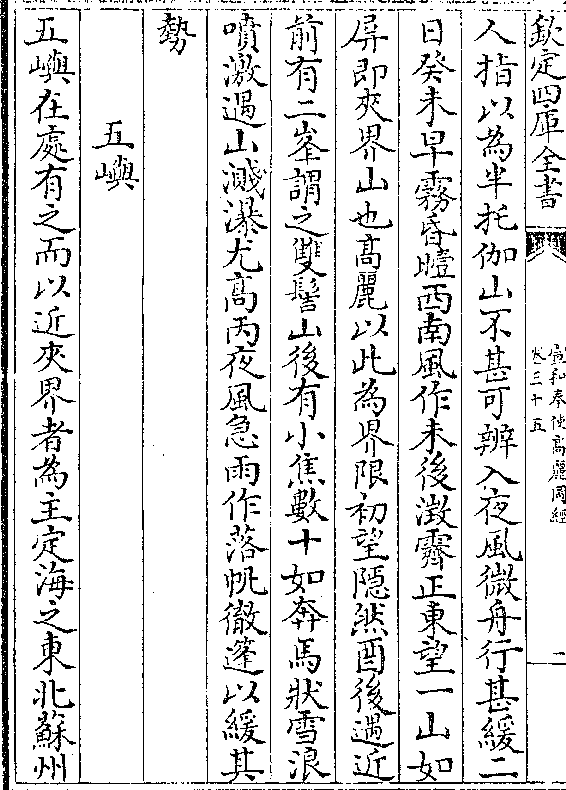 欽定四庫全書
宣和奉使高麗圖經
卷三十五
二
人指以為半托伽山不甚可辨入夜風微舟行甚緩二
日癸未早霧昏曀西南風作未後澂霽正東望一山如
屏即夾界山也高麗以此為界限初望隱然酉後逼近
前有二峯謂之雙髻山後有小焦數十如奔馬狀雪浪
噴激遇山濺瀑尤高丙夜風急雨作落帆徹篷以緩其
勢
五嶼
五嶼在處有之而以近夾界者為主定海之東北蘇州